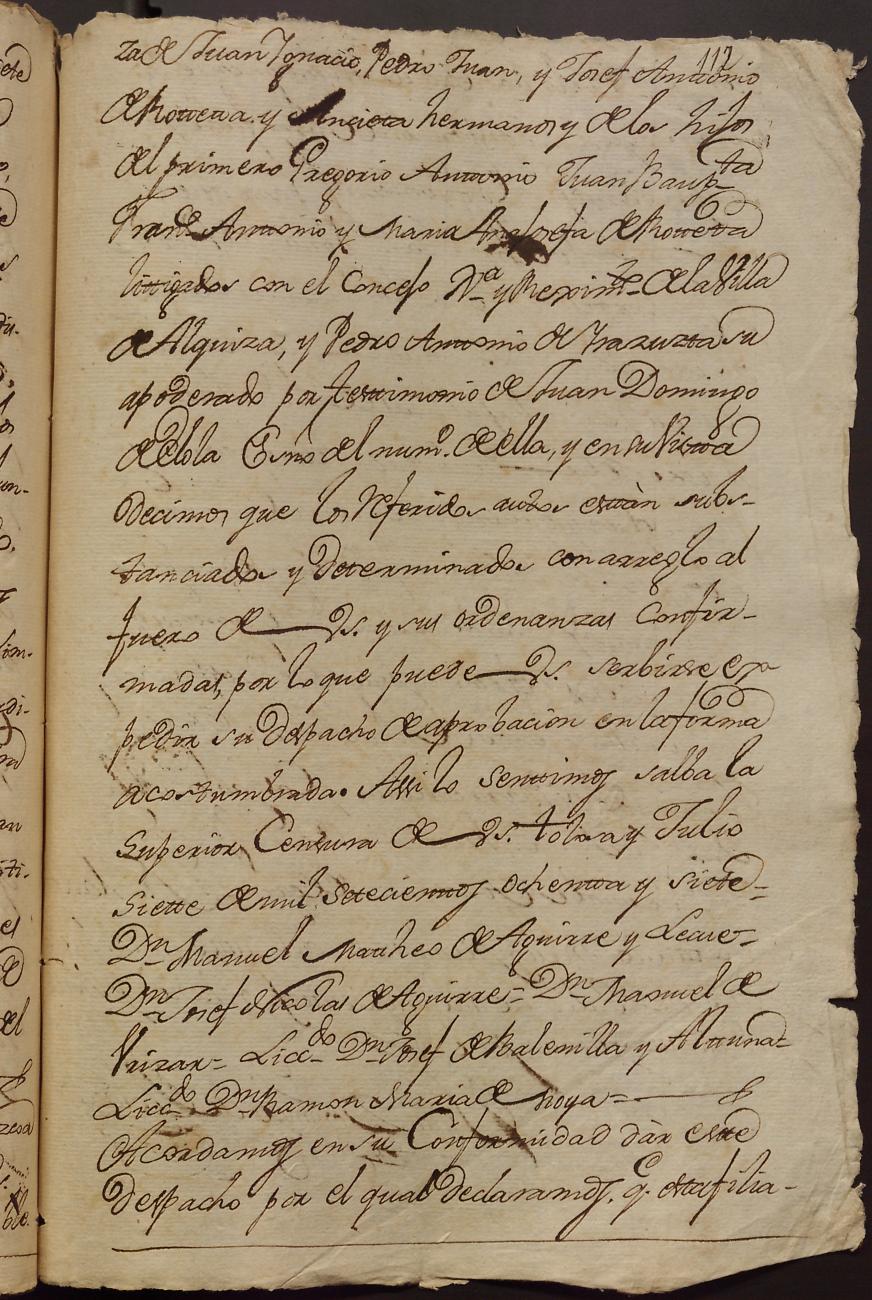 112
za de Juan Ygnacio, Pedro Juan, y Josef Antonio
de Rotteta y Ancieta hermanos y de los hijos
del primero Gregorio Antonio Juan Baup.ta
Fran.co Antonio y Maria Ana Josefa de Rotteta
littigados con el Concejo N.a y Reximto. de la Villa
de Alquiza, y Pedro Antonio de Yrazuzta su
apoderado por testimonio de Juan Domingo
de Elola Esno del num.o de ella, y en su Vista
decimos que los referidos autos están subs-
tanciados y determinados con arreglo al
fuero de VS. y sus ordenanzas confir-
madas, por lo que puede VS. serbirse ex
pedir su despacho de aprobacion en la forma
acostumbrada. Assi lo sentimos salba la
superior Censura de VS. Tolosa y Julio
siette de mil setecientos ochenta y siete=
Dn Manuel Matheo de Aguirre y
Dn Josef Nicolas de Aguirre= Dn Manuel de
Urizar= Licc.do Dn Josef de Balenilla y Altuna=
Licc.do Dn Ramon Maria de Moya=
Acordamos en su Conformidad dár este
despacho por el qual declaramos, q.e esta filia-